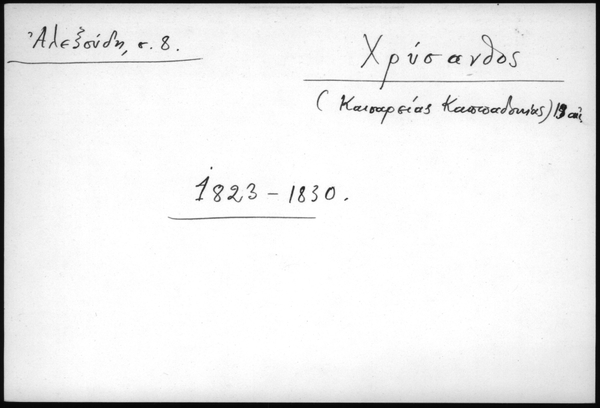 Ἀλεξούδη, σ. 8.
Χρύσανθος
(Καισαρείας Καππαδοκίας) 19 αἰ.
1823 – 1830.